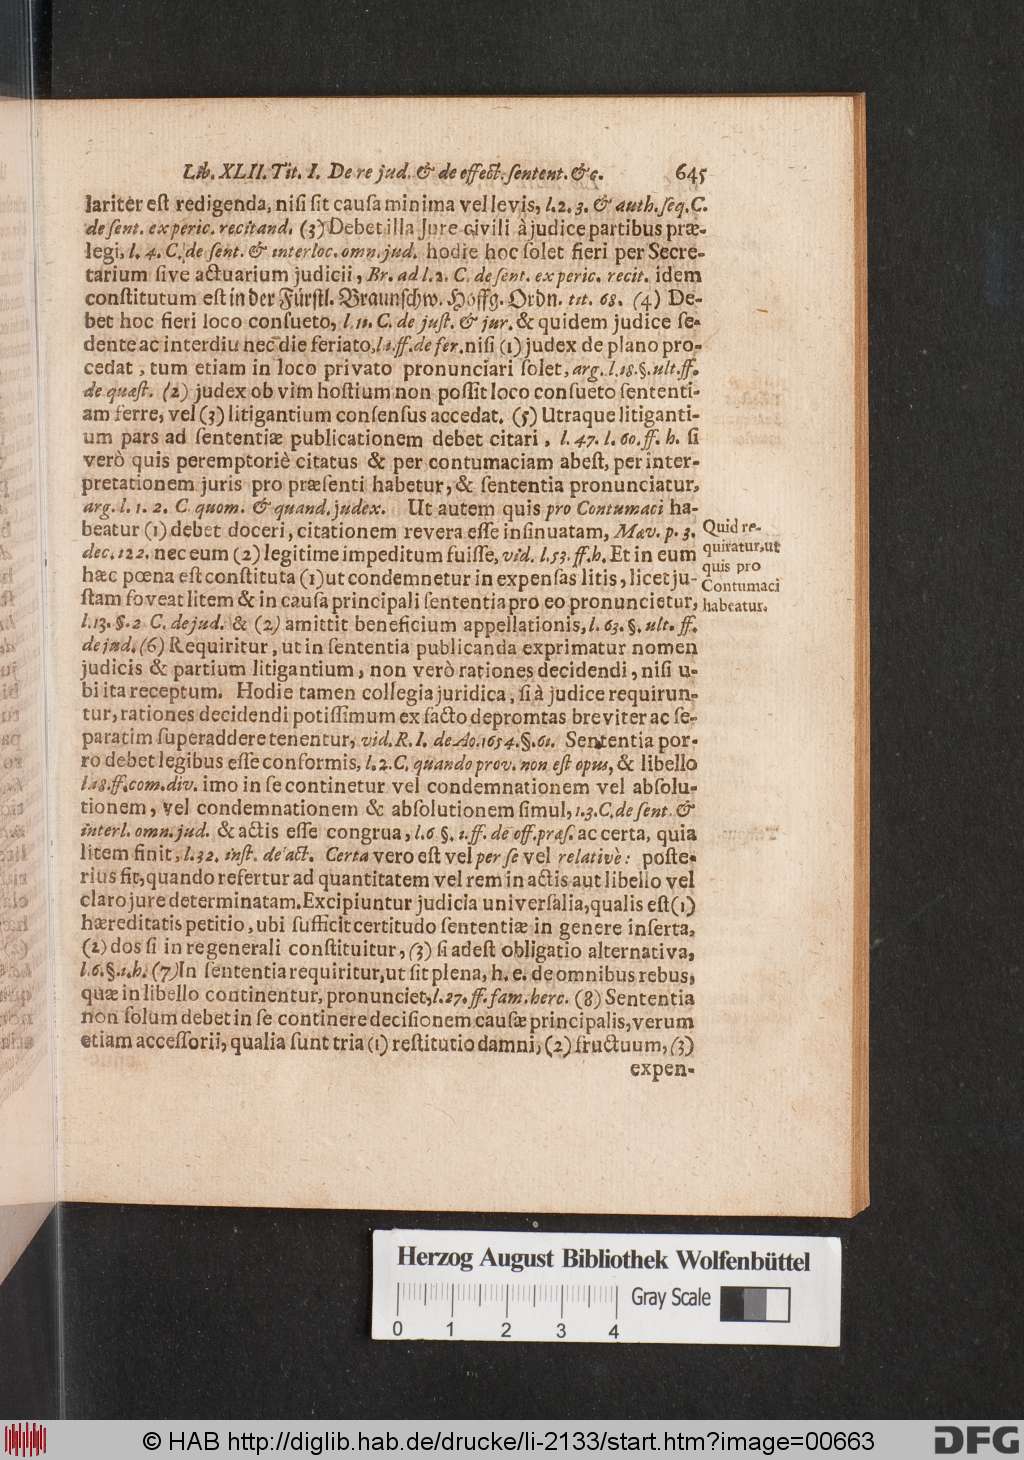 Lib. XLII. Tit. I. De re jud. & de effect. ſentent. &c. 645
lariter eſt redigenda, niſi ſit cauſa minima vel levis, l. 2. 3. & auth. ſeq. C.
de ſent. ex peric. recitand. (3) Debet illa Jure civili à judice partibus præ-
legi, l. 4. C. de ſent. & interloc. omn. jud. hodie hoc ſolet fieri per Secre-
tarium ſive actuarium judicii, Br. ad l. 2. C. de ſent. ex peric. recit. idem
conſtitutum eſt in der Fürſtl. Braunſchw. Hoffg. Ordn. tit. 68. (4) De-
bet hoc fieri loco conſueto, l. 11. C. de juſt. & jur. & quidem judice ſe-
dente ac interdiu nec die feriato, l. 1. ff. de fer. niſi (1) judex de plano pro-
cedat, tum etiam in loco privato pronunciari ſolet, arg. l. 18. §. ult. ff.
de quæſt. (2) judex ob vim hoſtium non poſſit loco conſueto ſententi-
am ferre, vel (3) litigantium conſenſus accedat. (5) Utraque litiganti-
um pars ad ſententiæ publicationem debet citari, l. 47. l. 60. ff. h. ſi
verò quis peremptoriè citatus & per contumaciam abeſt, per inter-
pretationem juris pro præſenti habetur, & ſententia pronunciatur,
arg. l. 1. 2. C. quom. & quand. judex. Ut autem quis pro Contumaci ha-
beatur (1) debet doceri, citationem revera eſſe inſinuatam, Mæv. p. 3.
dec. 122. nec eum (2) legitime impeditum fuiſſe, vid. l. 53. ff. h. Et in eum
hæc pœna eſt conſtituta (1) ut condemnetur in expenſas litis, licet ju-
ſtam foveat litem & in cauſa principali ſententia pro eo pronuncietur,
l. 13. §. 2 C. de jud. & (2) amittit beneficium appellationis, l. 63. §. ult. ff.
de jud. (6) Requiritur, ut in ſententia publicanda exprimatur nomen
judicis & partium litigantium, non verò rationes decidendi, niſi u-
bi ita receptum. Hodie tamen collegia juridica, ſi à judice requirun-
tur, rationes decidendi potiſſimum ex facto depromtas breviter ac ſe-
paratim ſuperaddere tenentur, vid. R. I. de Ao. 1654. §. 61. Sententia por-
ro debet legibus eſſe conformis, l. 2. C. quando prov. non eſt opus, & libello
l. 18. ff. com. div. imo in ſe continetur vel condemnationem vel abſolu-
tionem, vel condemnationem & abſolutionem ſimul, l. 3. C. de ſent. &
interl. omn. jud. & actis eſſe congrua, l. 6 §. 1. ff. de off. præſ. ac certa, quia
litem finit, l. 32. inſt. de act. Certa vero eſt vel per ſe vel relativè: poſte-
rius fit, quando refertur ad quantitatem vel rem in actis aut libello vel
claro jure determinatam. Excipiuntur judicia univerſalia, qualis eſt (1)
hæreditatis petitio, ubi ſufficit certitudo ſententiæ in genere inſerta,
(2) dos ſi in re generali conſtituitur, (3) ſi adeſt obligatio alternativa,
l. 6. §. 1. h. (7) In ſententia requiritur, ut ſit plena, h. e. de omnibus rebus,
quæ in libello continentur, pronunciet, l. 27. ff. fam. herc. (8) Sententia
non ſolum debet in ſe continere deciſionem cauſæ principalis, verum
etiam acceſſorii, qualia ſunt tria (1) reſtitutio damni, (2) fructuum, (3)
expen-
Quid re-
quiratur, ut
quis pro
Contumaci
habeatur.
Herzog August Bibliothek Wolfenbüttel
Gray Scale
0 1 2 3 4
© HAB http://diglib.hab.de/drucke/li-2133/start.htm?image=00663
DFG